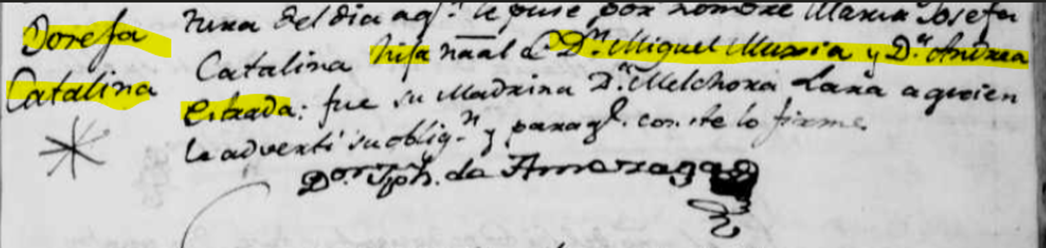 Josefa
Catalina
tura del dia aq.n le puse por nombre Maria Josefa
Catalina hija naãl de D.n Miguel Murzia y D.a Andrea
Estrada: fue su Madrina D.a Melchora Lara a quien
le adverti su oblig.n y para q.e conste lo firme
D.or Jph. de Amezaga